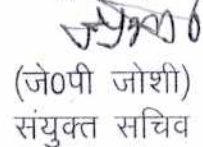 (जे0पी जोशी)
संयुक्त सचिव